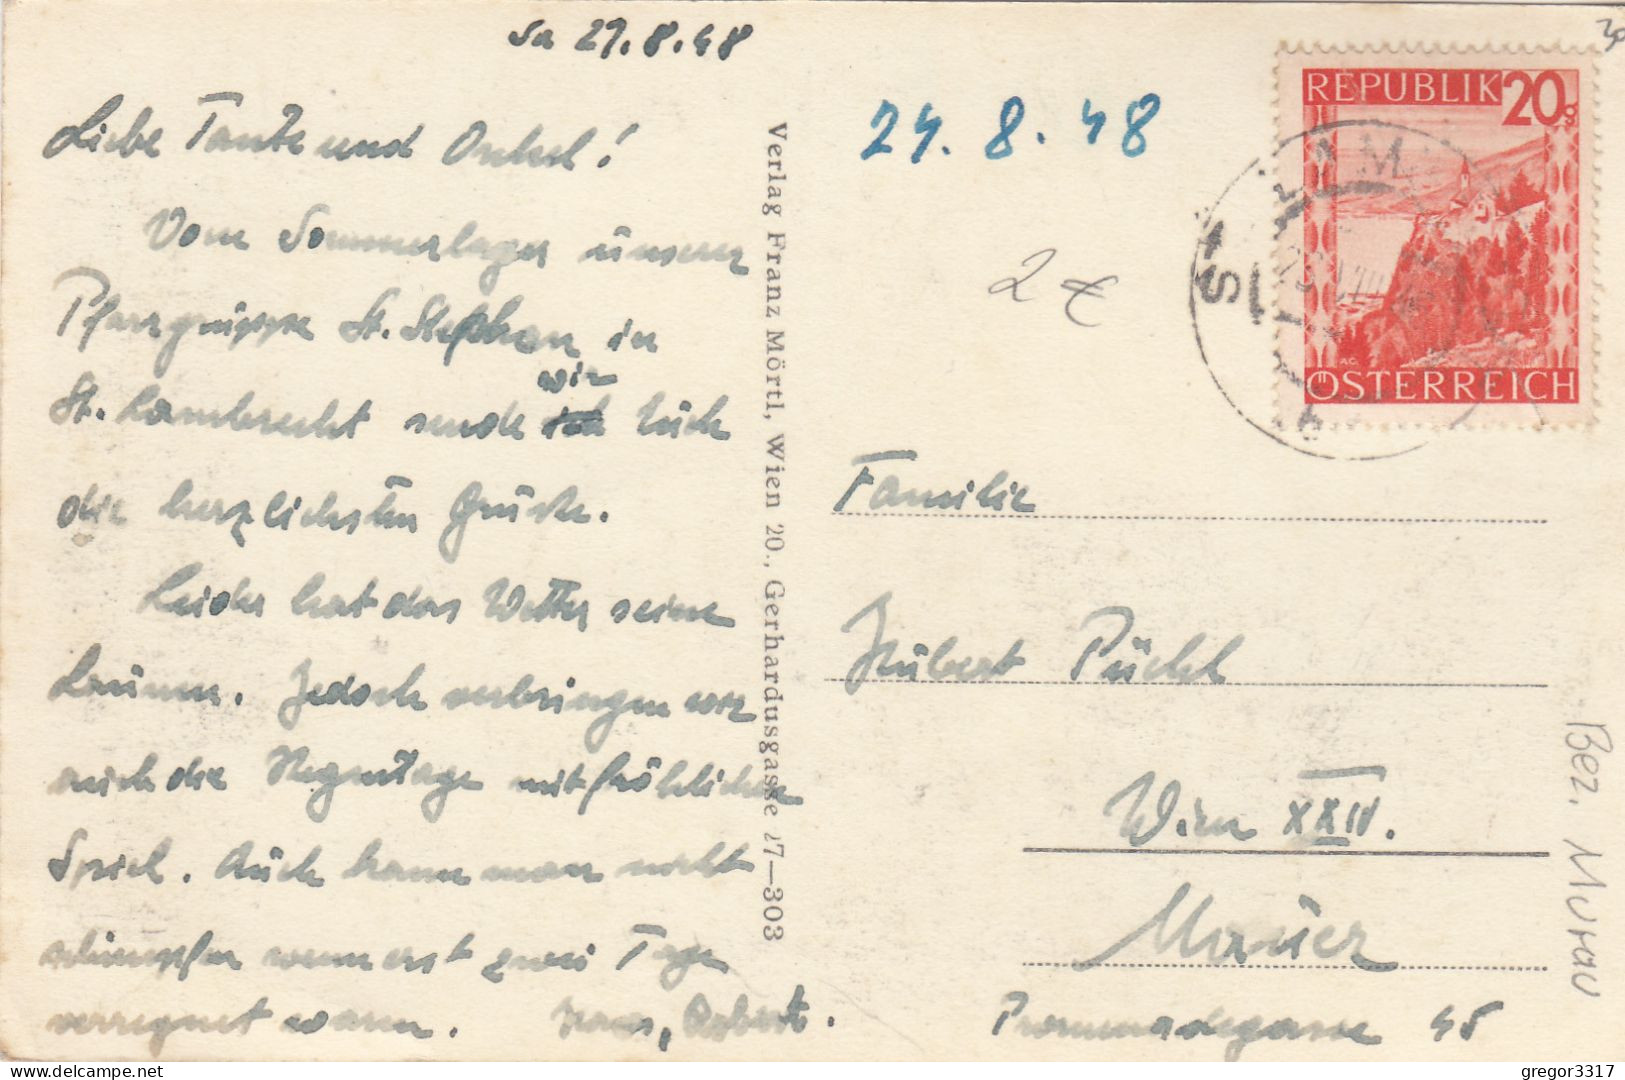 Sa 29.8.48
Liebe Tante und Onkel!
Vom Sommerlager unserer
Pfarrgruppe St. Stephan in
wir
St. Lambrecht sende ich Euch
die herzlichsten Grüße.
Leider hat das Wetter seine
Launen. Jedoch verbringen wir
auch die Regentage mit fröhlichem
Spiel. Auch kann man nicht
schimpfen wenn erst zwei Tage
verregnet waren. Hans, Robert.
Verlag Franz Mörtl, Wien 20., Gerhardusgasse 27—303
24.8.48
2 €
REPUBLIK 20g
ÖSTERREICH
Familie
Hubert Püchl
Wien XXIV.
Mauer
Promenadegasse 45
Bez. Murau
www.delcampe.net
gregor3317